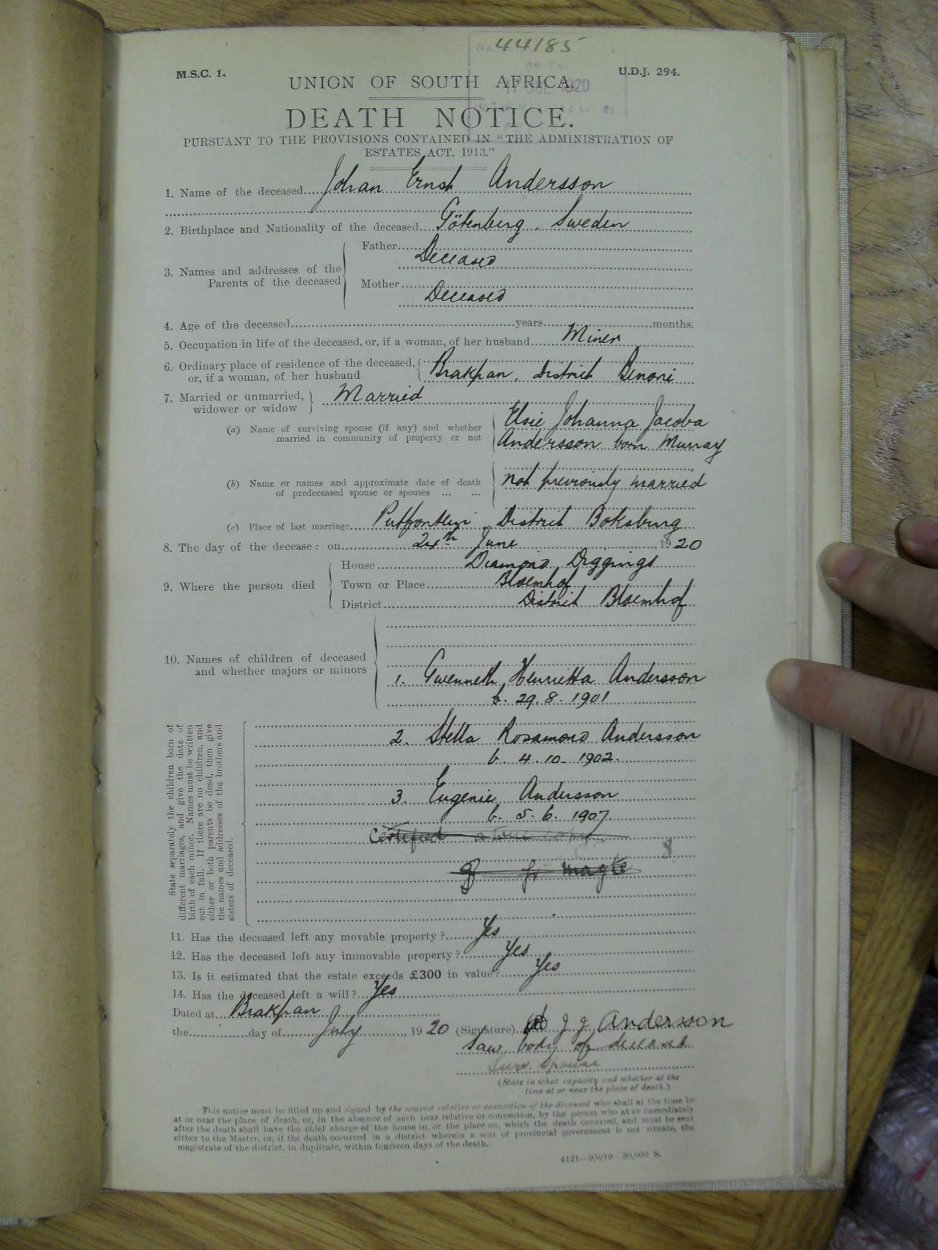 44185
M.S.C. 1.
U.D.J. 294.
UNION OF SOUTH AFRICA.
1920
DEATH NOTICE.
PURSUANT TO THE PROVISIONS CONTAINED IN "THE ADMINISTRATION OF
ESTATES ACT, 1913."
1. Name of the deceased Johan Ernst Andersson
2. Birthplace and Nationality of the deceased Götenberg. Sweden
3. Names and addresses of the Parents of the deceased
Father Deceased
Mother Deceased
4. Age of the deceased years months.
5. Occupation in life of the deceased, or, if a woman, of her husband Miner
6. Ordinary place of residence of the deceased,
or, if a woman, of her husband
Brakpan, District Benoni
7. Married or unmarried,
widower or widow
Married
(a) Name of surviving spouse (if any) and whether
married in community of property or not
Elsie Johanna Jacoba
Andersson born Murray
(b) Name or names and approximate date of death
of predeceased spouse or spouses ... ...
not previously married
(c) Place of last marriage Putfontein District Boksburg
8. The day of the decease: on 24th June 1920
9. Where the person died
House Diamond Diggings
Town or Place Bloemhof
District District Bloemhof
10. Names of children of deceased
and whether majors or minors
1. Gwenneth Henrietta Andersson
b. 29.8.1901
2. Stella Rosamond Andersson
b. 4.10.1902.
3 Eugenie Andersson
b. 5.6.1907
Certified a true copy
for Magte
State separately the children born of
different marriages, and give the date of
birth of each minor. Names must be written
out in full. If there are no children, and
either or both parents be dead, then give
the names and addresses of the brothers and
sisters of deceased.
11. Has the deceased left any movable property? Yes
12. Has the deceased left any immovable property? Yes
13. Is it estimated that the estate exceeds £300 in value? Yes
14. Has the deceased left a will? Yes
Dated at Brakpan
the day of July 1920
(Signature) J J Andersson
Saw body of deceased
Surv. Spouse
(State in what capacity and whether at the
time at or near the place of death.)
This notice must be filled up and signed by the nearest relative or connection of the deceased who shall at the time be
at or near the place of death, or, in the absence of such near relative or connection, by the person who at or immediately
after the death shall have the chief charge of the house in, or the place on, which the death occurred, and must be sent
either to the Master, or, if the death occurred in a district wherein a seat of provincial government is not situate, the
magistrate of the district, in duplicate, within fourteen days of the death.
4121—9/6/19—30,000 S.